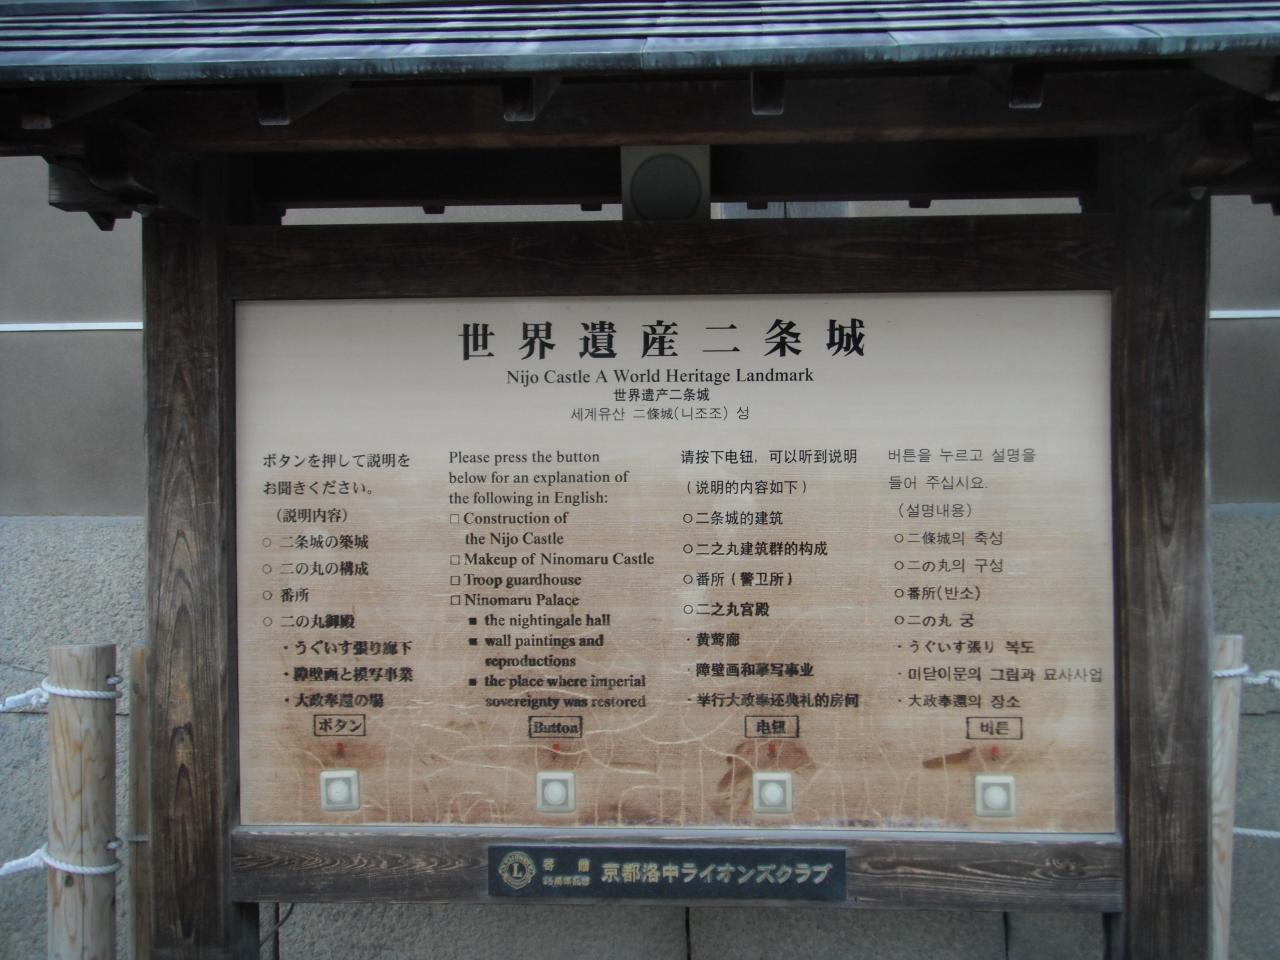 世界遺産二条城
Nijo Castle A World Heritage Landmark
世界遗产二条城
세계유산 二條城(니조조) 성
ボタンを押して説明を
お聞きください。
（説明内容）
○ 二条城の築城
○ 二の丸の構成
○ 番所
○ 二の丸御殿
・うぐいす張り廊下
・障壁画と模写事業
・大政奉還の場
ボタン
Please press the button
below for an explanation of
the following in English:
□ Construction of
the Nijo Castle
□ Makeup of Ninomaru Castle
□ Troop guardhouse
□ Ninomaru Palace
■ the nightingale hall
■ wall paintings and
reproductions
■ the place where imperial
sovereignty was restored
Button
请按下电钮，可以听到说明
（说明的内容如下）
○二条城的建筑
○二之丸建筑群的构成
○番所（警卫所）
○二之丸宫殿
· 黄莺廊
· 障壁画和摹写事业
· 举行大政奉还典礼的房间
电钮
버튼을 누르고 설명을
들어 주십시요.
(설명내용)
○二條城의 축성
○二の丸의 구성
○番所(반소)
○二の丸 궁
・うぐいす張り 복도
・미닫이문의 그림과 묘사사업
・大政奉還의 장소
버튼
L
寄贈
京都洛中ライオンズクラブ